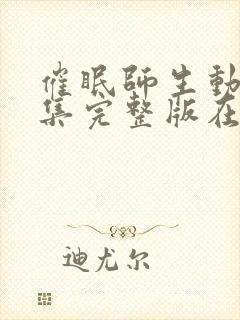 催眠師生動
集完整版在
迪尤尔